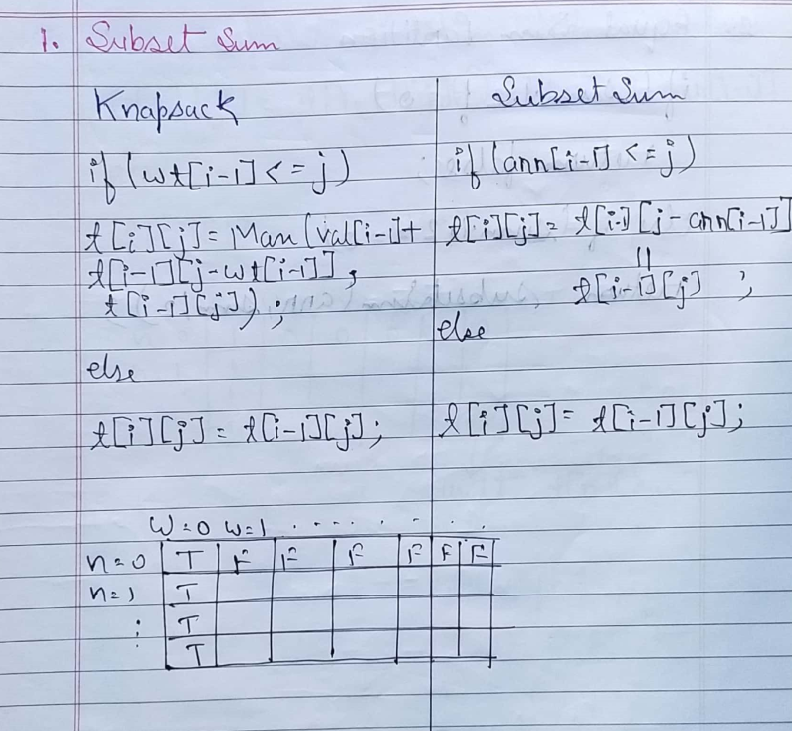 1. Subset Sum
Knapsack
if (wt[i-1] <= j)
t[i][j] = Max (val[i-1] +
t[i-1][j-wt[i-1]],
t[i-1][j]);
else
t[i][j] = t[i-1][j];
Subset Sum
if (arr[i-1] <= j)
t[i][j] = t[i-1][j-arr[i-1]]
||
t[i-1][j] ;
else
t[i][j] = t[i-1][j];
W=0 W=1 . . . . . . . .
n=0 T F F F F F F
n=1 T
: T
: T